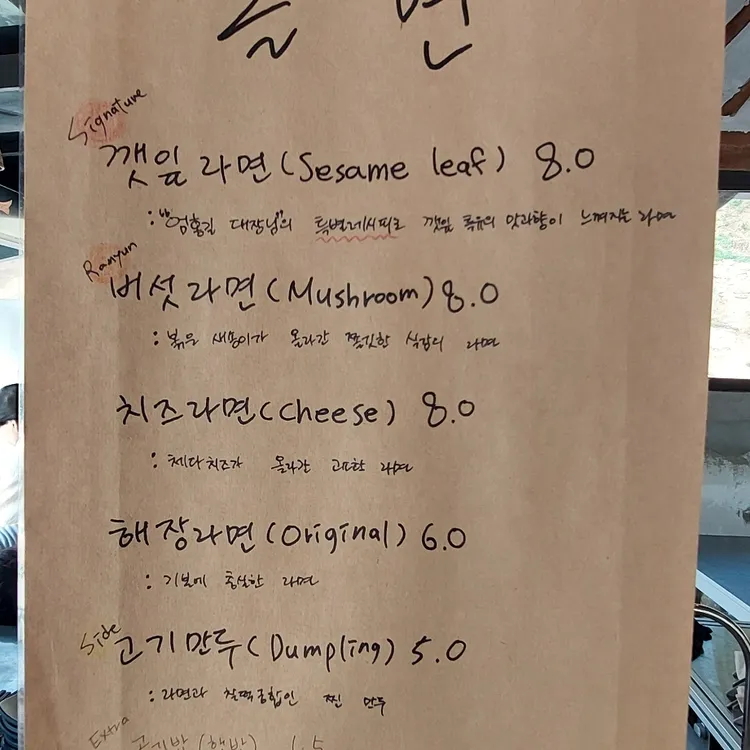 Signature
깻잎라면 (Sesame leaf) 8.0
: "엄홍길 대장님"의 특별레시피로 깻잎 족유의 맛과향이 느껴지는 라면
Ranyun
버섯라면 (Mushroom) 8.0
: 볶은 새송이가 올라간 쫄깃한 식감의 라면
치즈라면 (Cheese) 8.0
: 체다치즈가 올라간 고소한 라면
해장라면 (Original) 6.0
: 기본에 충실한 라면
Side
고기만두 (Dumpling) 5.0
: 라면과 찰떡궁합인 찐 만두
Extra
공기밥 (햇반) 1.5